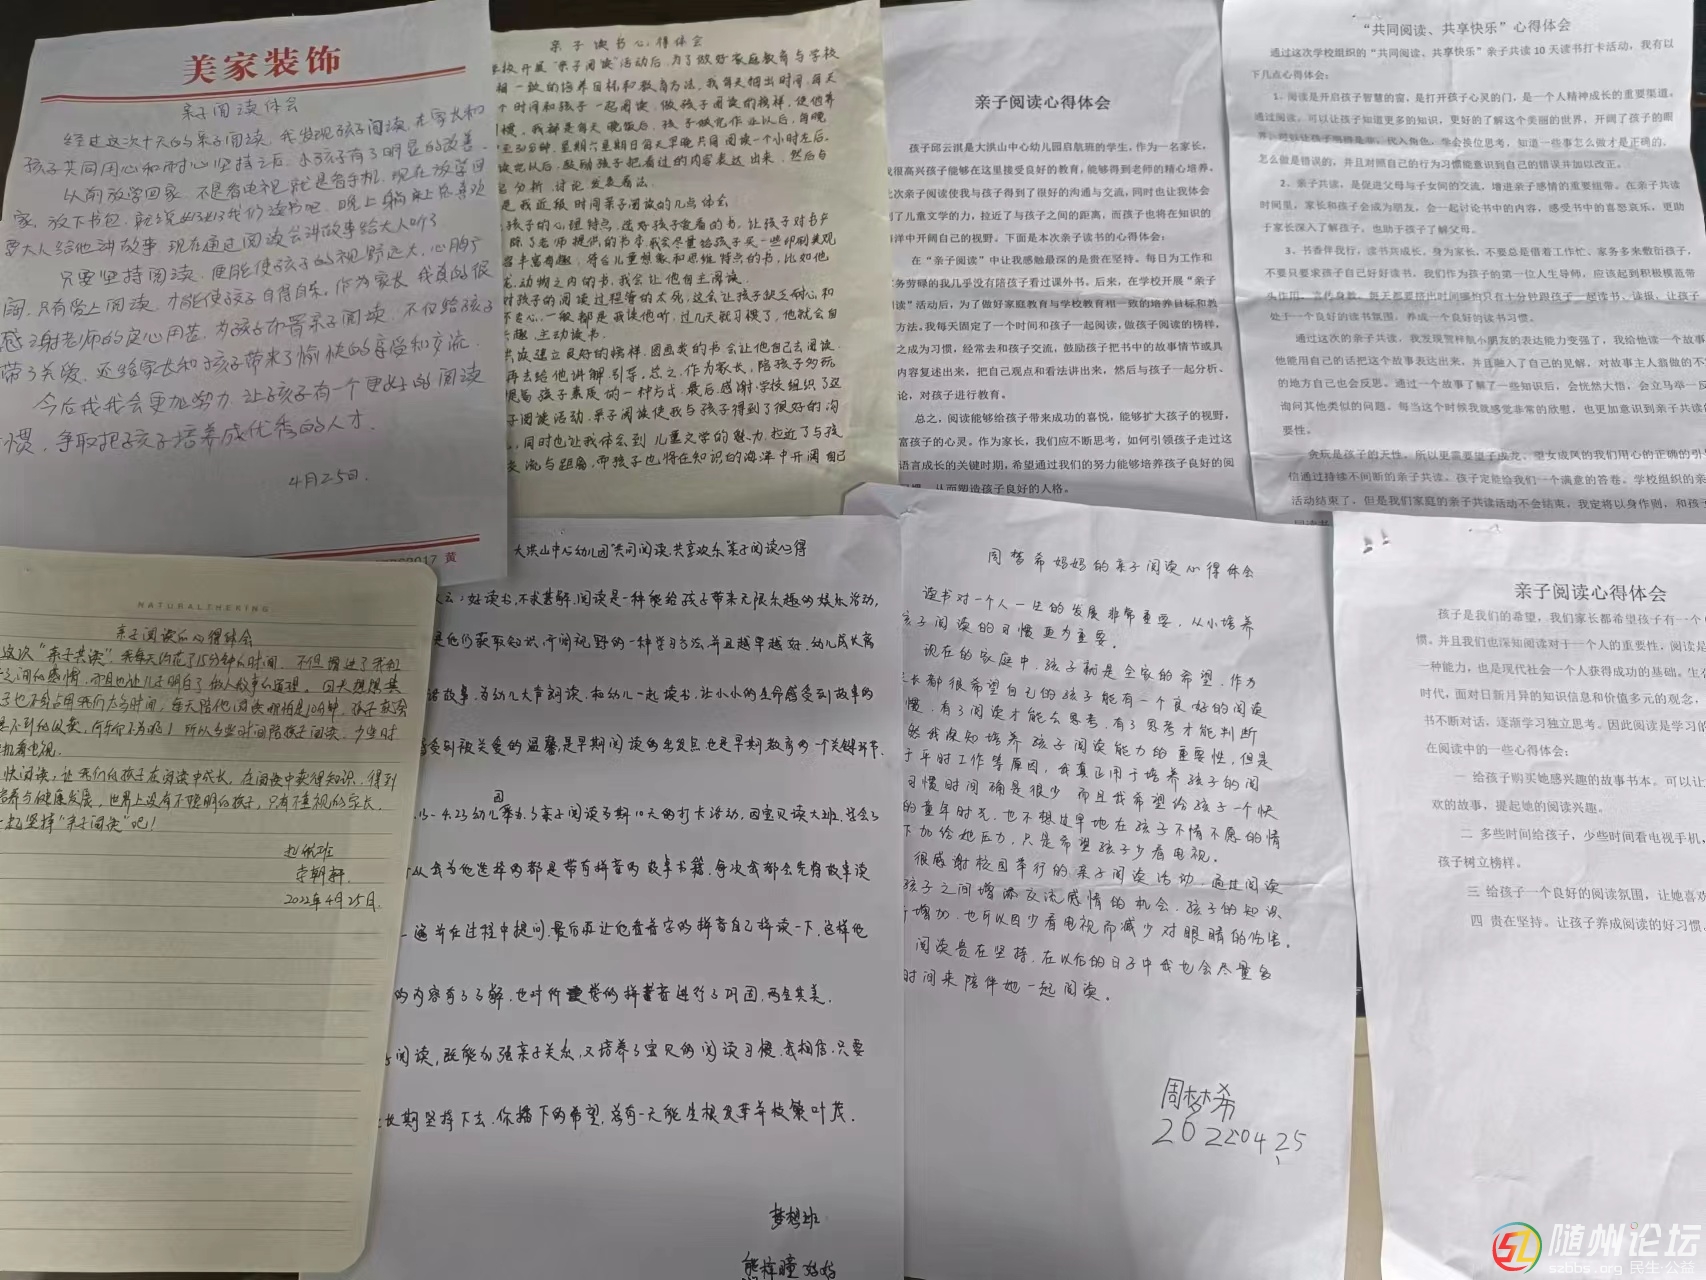 美家装饰
亲子阅读体会
经过这次十天的亲子阅读，我发现孩子阅读，在家长和
孩子共同用心和耐心坚持之后，小孩子有了明显的改善。
以前放学回家，不是看电视就是看手机，现在放学回
家，放下书包，就说我们读书吧，晚上躺床上总喜欢
要大人给他讲故事，现在通过阅读会讲故事给大人听了
只要坚持阅读，便能使孩子的视野远大，心胸广
阔，只有爱上阅读，才能使孩子自得自乐，作为家长，我真的很
感谢老师的良心用苦，为孩子布置亲子阅读，不仅给孩子
带了关爱，还给家长和孩子带来了愉快的享受和交流。
今后我会更加努力，让孩子有一个更好的阅读
惯，争取把孩子培养成优秀的人才。
4月25日.
2017 黄
亲子读书心得体会
学校开展"亲子阅读"活动后，为了做好家庭教育与学校
相一致的培养目标和教育方法，我每天抽出时间，每天
个时间和孩子一起阅读，做孩子阅读的榜样，使他养
惯，我都是每天晚饭后，孩子做完作业以后，每晚
至30分钟，星期六星期日每天早晚共同阅读一个小时左右。
读完以后，鼓励孩子把看过的内容表达出来，然后与
分析，讨论，发表看法。
是我近段时间亲子阅读的几点体会
孩子的心理特点，选好孩子爱看的书，让孩子对书产
除了老师提供的书本，我会尽量给孩子买一些印刷美观
容丰富有趣，符合儿童想象和思维特点的书，比如他
龙，动物之内的书，我会让他自主阅读。
对孩子的阅读过程管的太死，这会让孩子缺乏耐心和
一般都是我读他听，过几天就习惯了，他就会自
趣，主动读书。
孩建立良好的榜样，图画类的书会让他自己去阅读，
再去给他讲解，引导，总之，作为家长，陪孩子多玩
提高孩子素质的一种方式，最后感谢学校组织了这
子阅读活动，亲子阅读使我与孩子得到了很好的沟
，同时也让我体会到儿童文学的魅力，拉近了与孩
交流与距离，而孩子也将在知识的海洋中开阔自己
亲子阅读心得体会
孩子邱云淇是大洪山中心幼儿园启航班的学生，作为一名家长，
我很高兴孩子能够在这里接受良好的教育，能够得到老师的精心培养。
此次亲子阅读使我与孩子得到了很好的沟通与交流，同时也让我体会
到了儿童文学的力，拉近了与孩子之间的距离，而孩子也将在知识的
海洋中开阔自己的视野。下面是本次亲子读书的心得体会：
在"亲子阅读"中让我感触最深的是贵在坚持。每日为工作和
家务劳碌的我几乎没有陪孩子看过课外书。后来，在学校开展"亲子
阅读"活动后，为了做好家庭教育与学校教育相一致的培养目标和教
方法。我每天固定了一个时间和孩子一起阅读，做孩子阅读的榜样，
之成为习惯，经常去和孩子交流，鼓励孩子把书中的故事情节或具
内容复述出来，把自己观点和看法讲出来，然后与孩子一起分析、
论，对孩子进行教育。
总之，阅读能够给孩子带来成功的喜悦，能够扩大孩子的视野，
富孩子的心灵。作为家长，我们应不断思考，如何引领孩子走过这
语言成长的关键时期，希望通过我们的努力能够培养孩子良好的阅
，从而塑造孩子良好的人格。
"共同阅读、共享快乐"心得体会
通过这次学校组织的"共同阅读、共享快乐"亲子共读10天读书打卡活动，我有以
下几点心得体会：
1、阅读是开启孩子智慧的窗，是打开孩子心灵的门，是一个人精神成长的重要渠道。
通过阅读，可以让孩子知道更多的知识，更好的了解这个美丽的世界，开阔了孩子的眼
界，可以让孩子明辨是非，代入角色，学会换位思考，知道一些事怎么做才是正确的，
怎么做是错误的，并且对照自己的行为习惯能意识到自己的错误并加以改正。
2、亲子共读，是促进父母与子女间的交流，增进亲子感情的重要纽带。在亲子共读
时间里，家长和孩子会成为朋友，会一起讨论书中的内容，感受书中的喜怒哀乐，更助
于家长深入了解孩子，也助于孩子了解父母。
3、书香伴我行，读书共成长。身为家长，不要总是借着工作忙、家务多来敷衍孩子，
不要只要求孩子自己好好读书。我们作为孩子的第一位人生导师，应该起到积极模范带
头作用，言传身教，每天都要挤出时间哪怕只有十分钟跟孩子一起读书、读报，让孩子
处于一个良好的读书氛围，养成一个良好的读书习惯。
通过这次的亲子共读，我发现贺梓航小朋友的表达能力变强了，我给他读一个故事
他能用自己的话把这个故事表达出来，并且融入了自己的见解，对故事主人翁做的不
的地方自己也会反思。通过一个故事了解了一些知识后，会恍然大悟，会立马举一反
询问其他类似的问题。每当这个时候我就感觉非常的欣慰，也更加意识到亲子共读
要性。
贪玩是孩子的天性，所以更需要望子成龙、望女成凤的我们用心的正确的引
信通过持续不间断的亲子共读。孩子定能给我们一个满意的答卷。学校组织的亲
活动结束了，但是我们家庭的亲子共读活动不会结束，我定将以身作则，和孩
NATURALTHERING
亲子阅读后心得体会
这次"亲子共读"，我每天约花了15分钟的时间，不但增进了我和
之间的感情，而且也让儿子明白了做人做事的道理。回头想想其
也不会占用我们太多时间，每天陪他阅读哪怕是10分钟，孩子获
意不到的收获，何乐而不为呢！所以多些时间陪孩子阅读，少些时
机看电视。
快阅读，让我们的孩子在阅读中成长，在阅读中获得知识，得到
培养与健康发展，世界上没有不聪明的孩子，只有不重视的家长，
一起坚持"亲子阅读"吧！
启航班
2022年4月25日
大洪山中心幼儿园"共同阅读，共享欢乐"亲子阅读心得
云：好读书，不求甚解，阅读是一种能给孩子带来无限乐趣的娱乐活动，
是他们获取知识，开阔视野的一种学习方法，并且越早越好，幼儿成长离
故事，为幼儿大声朗读，和幼儿一起读书，让小小的生命感受到故事的
感受到被关爱的温馨，是早期阅读的出发点，也是早期教育的一个关键环节。
4.23幼儿园举办了亲子阅读为期10天的打卡活动，因宝贝读大班，
从去为他选择的都是带有拼音的故事书籍，每次我都会先将故事读
遍并在过程中提问，最后再让他看着字的拼音自己拼读一下，这样他
的内容有了了解，也对所学的拼音进行了巩固，两全其美。
阅读，既能加强亲子关系，又培养了宝贝的阅读习惯，我相信，只要
长期坚持下去，你播下的希望，总有一天能生根发芽并枝繁叶茂。
梦想班
熊梓瞳妈妈
周梦希妈妈的亲子阅读心得体会
读书对一个人一生的发展非常重要，从小培养
孩子阅读的习惯更为重要。
现在的家庭中，孩子就是全家的希望，作为
家长都很希望自己的孩子能有一个良好的阅读
惯，有了阅读才能去思考，有了思考才能判断
然我深知培养孩子阅读能力的重要性，但是
于平时工作等原因，我真正用于培养孩子的阅
习惯时间确是很少，而且我希望给孩子一个快
的童年时光，也不想过早地在孩子不情不愿的情
下加给她压力，只是希望孩子少看电视。
很感谢校园举行的亲子阅读活动，通过阅读
孩子之间增添交流感情的机会，孩子的知识
增加，也可以因少看电视而减少对眼睛的伤害。
阅读贵在坚持，在以后的日子中我也会尽量多
时间来陪伴她一起阅读。
周梦希
20220425
亲子阅读心得体会
孩子是我们的希望，我们家长都希望孩子有一个
惯。并且我们也深知阅读对于一个人的重要性，阅读是
一种能力，也是现代社会一个人获得成功的基础。生
时代，面对日新月异的知识信息和价值多元的观念，
书不断对话，逐渐学习独立思考。因此阅读是学习的
在阅读中的一些心得体会：
一 给孩子购买她感兴趣的故事书本。可以让
欢的故事，提起她的阅读兴趣。
二 多些时间给孩子，少些时间看电视手机，
孩子树立榜样。
三 给孩子一个良好的阅读氛围，让她喜
四 贵在坚持。让孩子养成阅读的好习惯，
随州论坛
szbbs.org 民生·公益